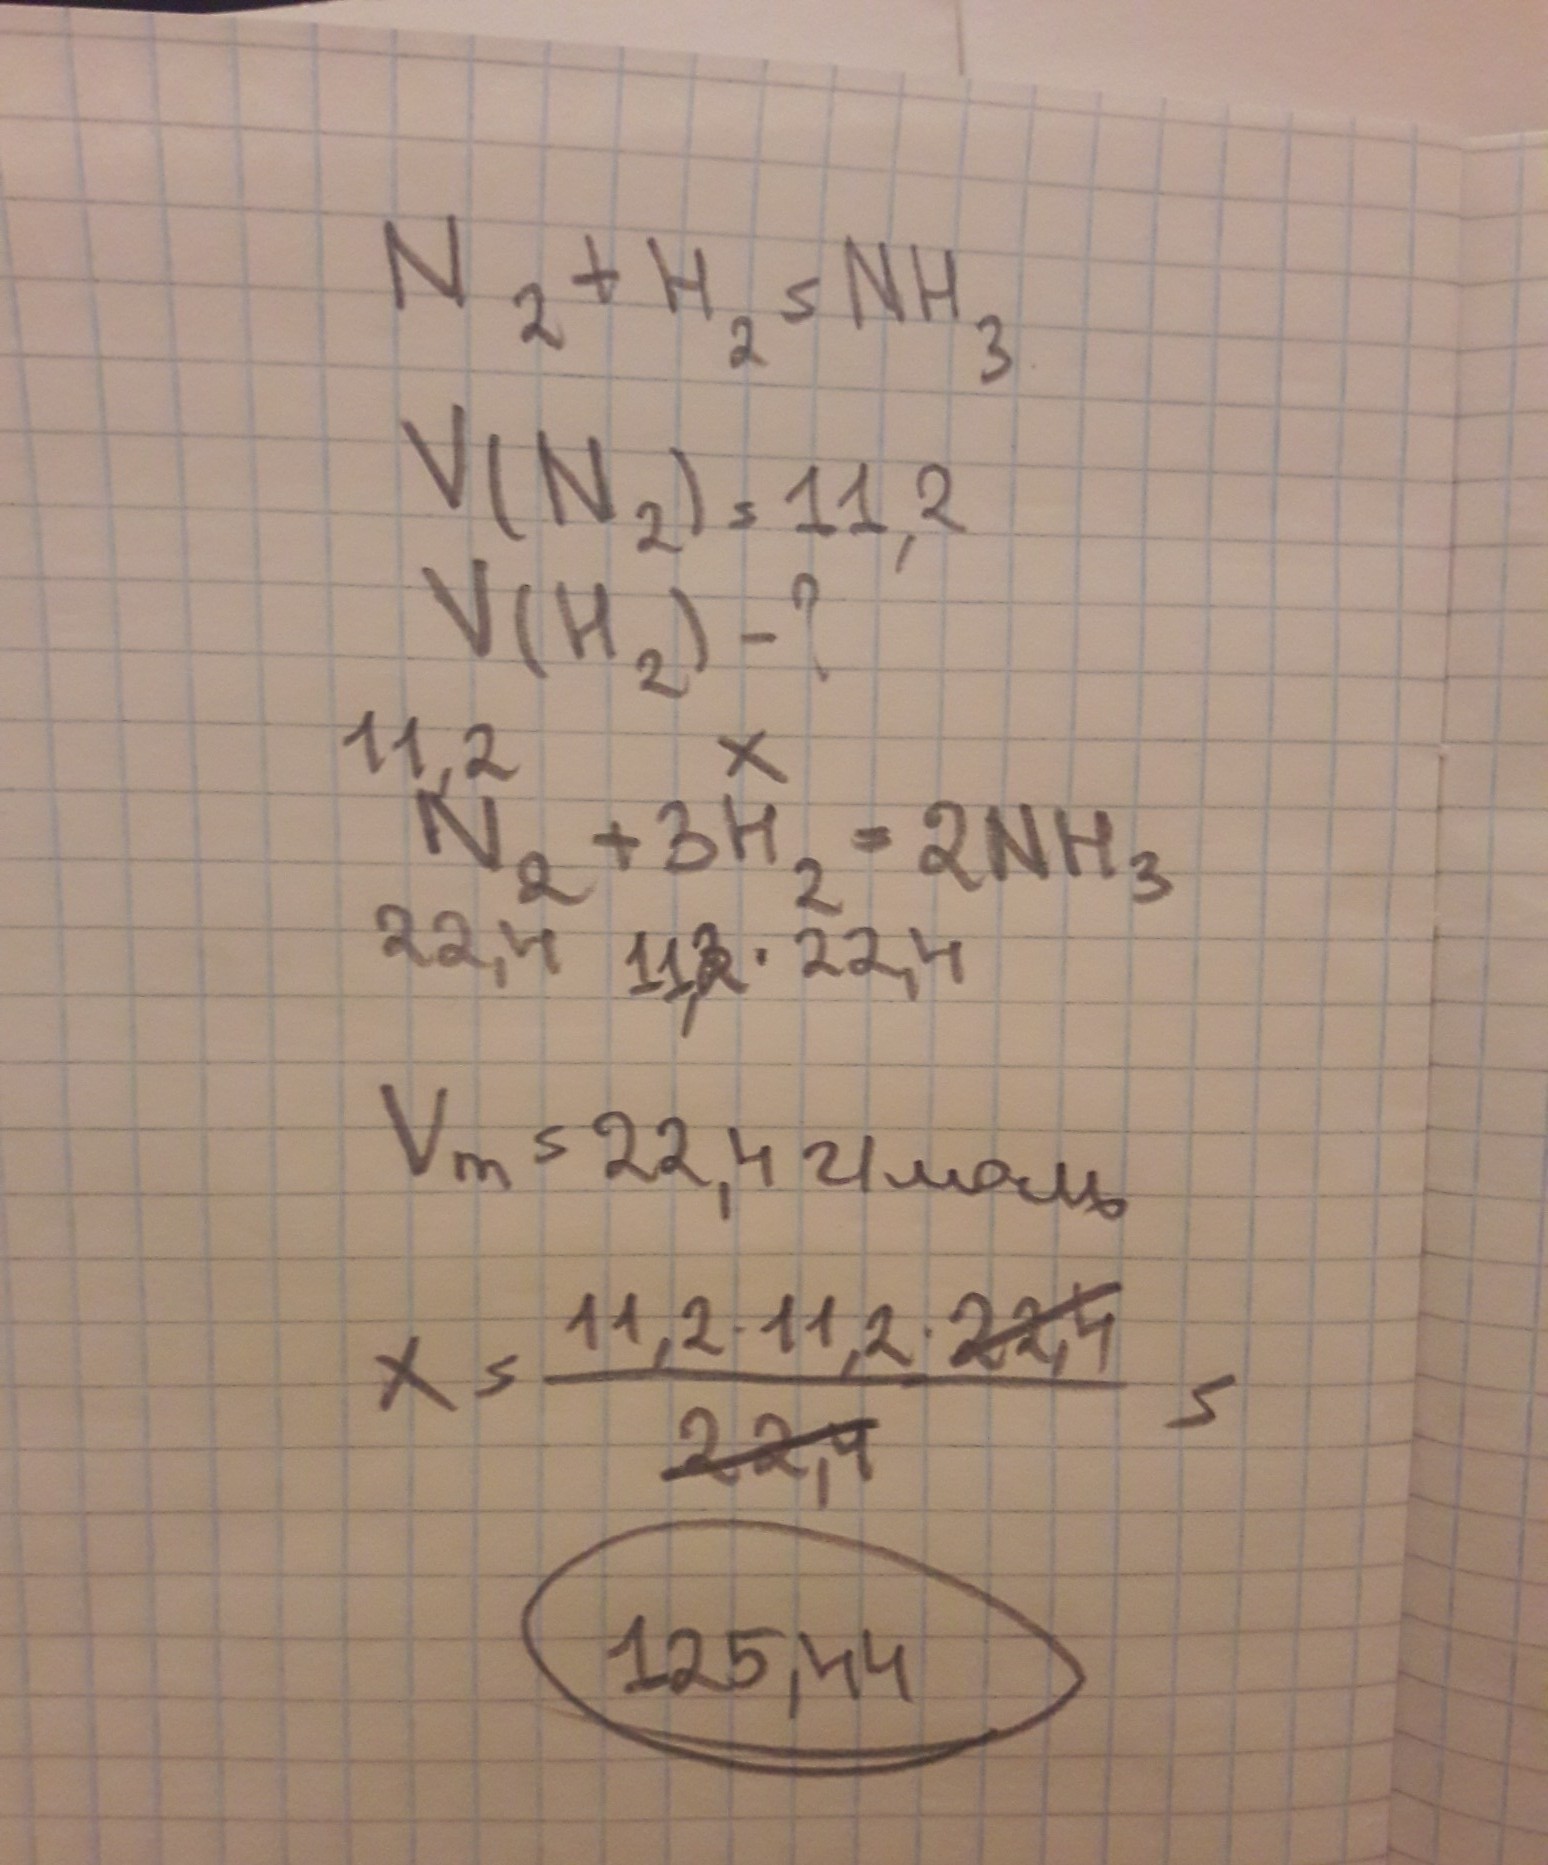 N2 + H2 = NH3
V(N2) = 11,2
V(H2) - ?
11,2 x
N2 + 3H2 = 2NH3
22,4 11,2 · 22,4
Vm = 22,4 г/моль
x = 11,2 · 11,2 · 22,4 =
22,4
125,44